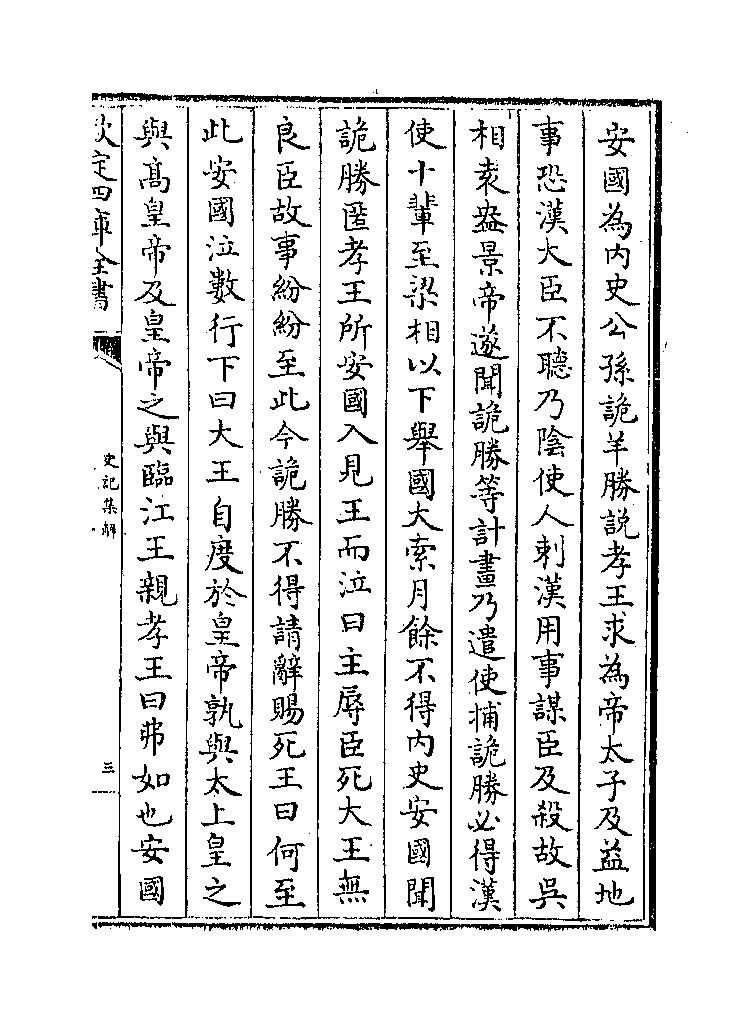 安國為内史公孫詭羊勝說孝王求為帝太子及益地
事恐漢大臣不聽乃陰使人刺漢用事謀臣及殺故吳
相袁盎景帝遂聞詭勝等計畫乃遣使捕詭勝必得漢
使十輩至梁相以下舉國大索月餘不得内史安國聞
詭勝匿孝王所安國入見王而泣曰主辱臣死大王無
良臣故事紛紛至此今詭勝不得請辭賜死王曰何至
此安國泣數行下曰大王自度於皇帝孰與太上皇之
與髙皇帝及皇帝之與臨江王親孝王曰弗如也安國
欽定四庫全書
史記集解
三